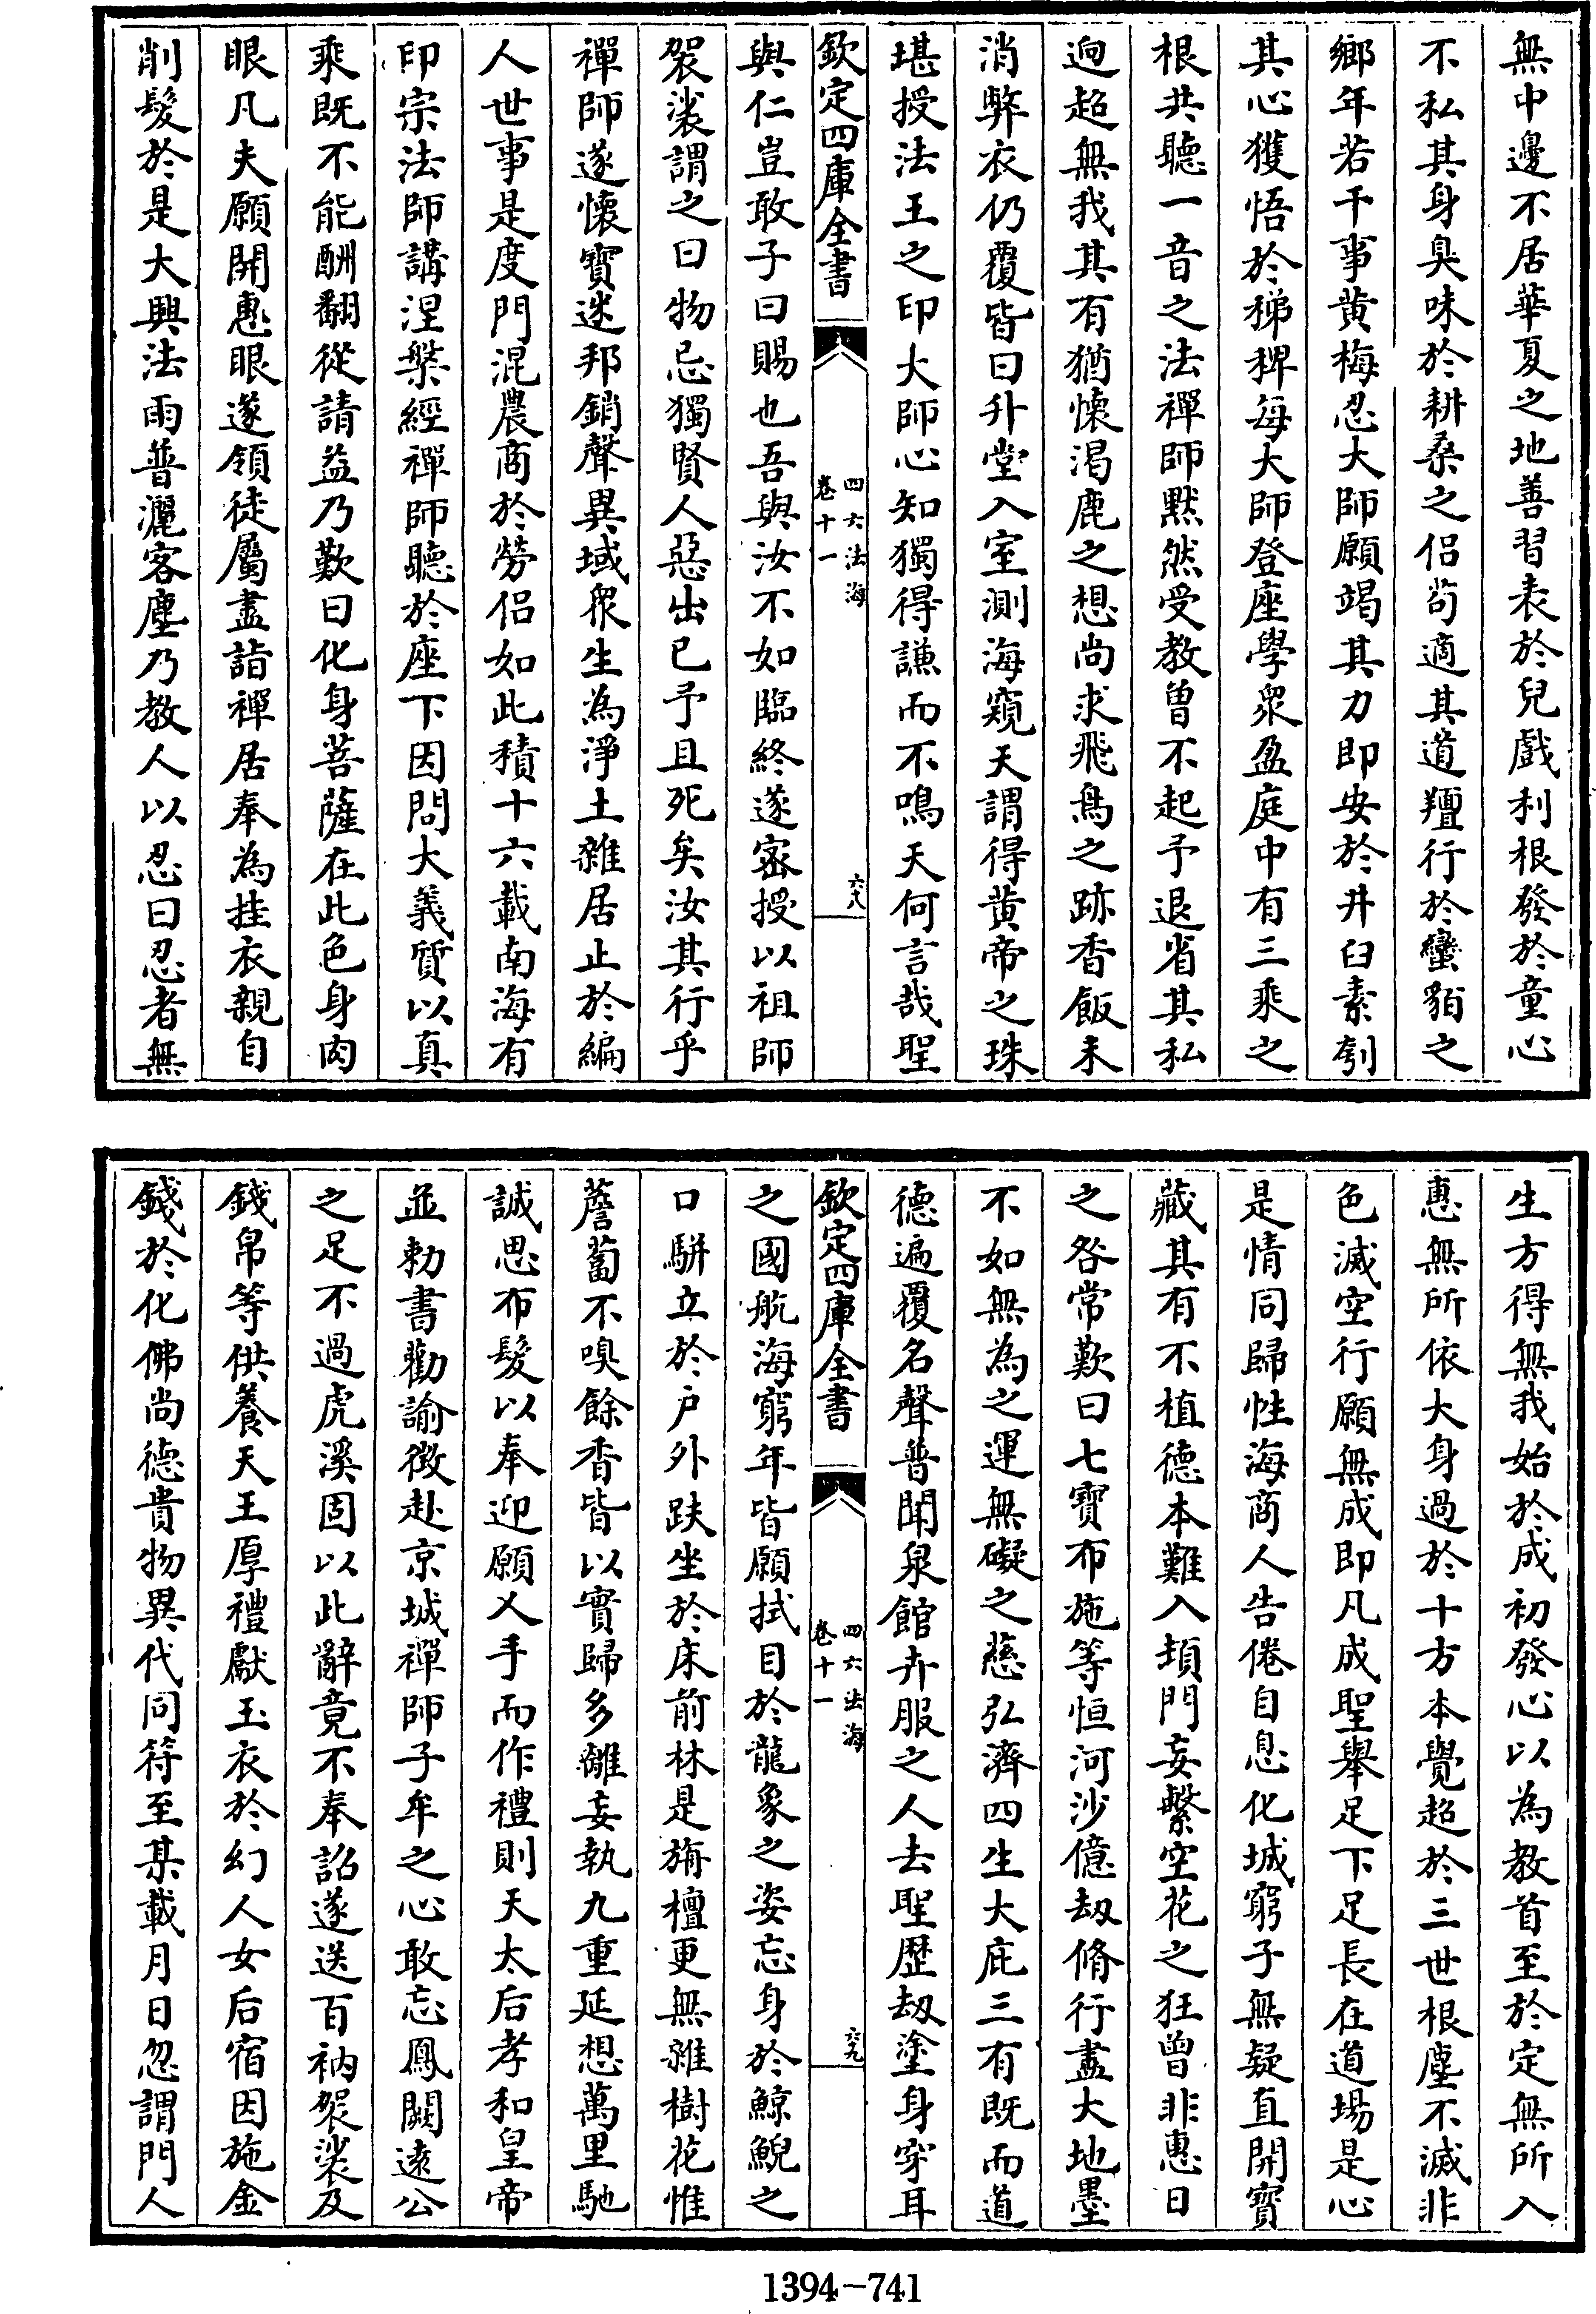 無中邊不居華夏之地善習表於兒戲利根發於童心
不私其身臭味於耕桑之侣茍適其道羶行於蠻貊之
鄉年若干事黄梅忍大師願竭其力即安於井臼素刳
其心獲悟於稊稗每大師登座學衆盈庭中有三乘之
根共聽一音之法禪師默然受教曽不起予退省其私
迥超無我其有猶懷渇鹿之想尚求飛鳥之跡香飯未
消弊衣仍覆皆曰升堂入室測海窺天謂得黄帝之珠
堪授法王之印大師心知獨得謙而不鳴天何言哉聖
欽定四庫全書
四六法海
卷十一
六八
與仁豈敢子曰賜也吾與汝不如臨終遂密授以祖師
袈裟謂之曰物忌獨賢人惡出已予且死矣汝其行乎
禪師遂懷寳迷邦銷聲異域衆生為淨土雜居止於編
人世事是度門混農商於勞侣如此積十六載南海有
印宗法師講涅槃經禪師聽於座下因問大義質以真
乘既不能酬翻從請益乃歎曰化身菩薩在此色身肉
眼凡夫願開惠眼遂領徒屬盡詣禪居奉為挂衣親自
削髮於是大興法雨普灑客塵乃教人以忍曰忍者無
生方得無我始於成初發心以為教首至於定無所入
惠無所依大身過於十方本覺超於三世根塵不滅非
色滅空行願無成即凡成聖舉足下足長在道場是心
是情同歸性海商人告倦自息化城窮子無疑直開寳
藏其有不植德本難入頓門妄繫空花之狂曽非惠日
之咎常歎曰七寳布施等恒河沙億劫脩行盡大地墨
不如無為之運無礙之慈弘濟四生大庇三有既而道
德遍覆名聲普聞泉館卉服之人去聖歴劫塗身穿耳
欽定四庫全書
四六法海
卷十一
六九
之國航海窮年皆願拭目於龍象之姿忘身於鯨鯢之
口駢立於户外趺坐於床前林是旃檀更無雜樹花惟
薝蔔不嗅餘香皆以實歸多離妄執九重延想萬里馳
誠思布髮以奉迎願乂手而作禮則天太后孝和皇帝
並勅書勸諭徴赴京城禪師子牟之心敢忘鳳闕遠公
之足不過虎溪固以此辭竟不奉詔遂送百衲袈裟及
錢帛等供養天王厚禮獻玉衣於幻人女后宿因施金
錢於化佛尚德貴物異代同符至某載月日忽謂門人
1394-741